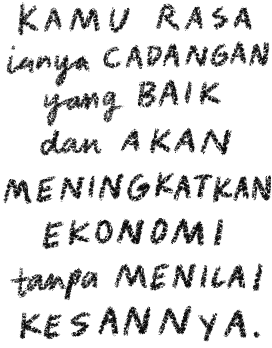 KAMU RASA
ianya CADANGAN
yang BAIK
dan AKAN
MENINGKATKAN
EKONOMI
tanpa MENILAI
KESANNYA.